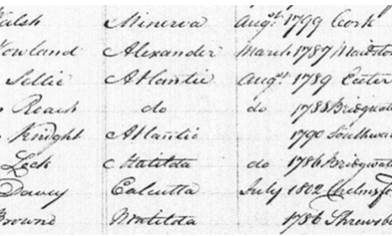 Walsh Minerva Augt. 1799 Cork
Howland Alexander March 1787 Maidsto
Sellie Atlantic Augt. 1789 Exeter
Reach do do 1788 Bridgwat
Knight Atlantic 1790 Southwar
Lock Matilda do 1786 Bridgwat
Davey Calcutta July 1802 Chelmsf
Browne Matilda 1786 Shrewsb